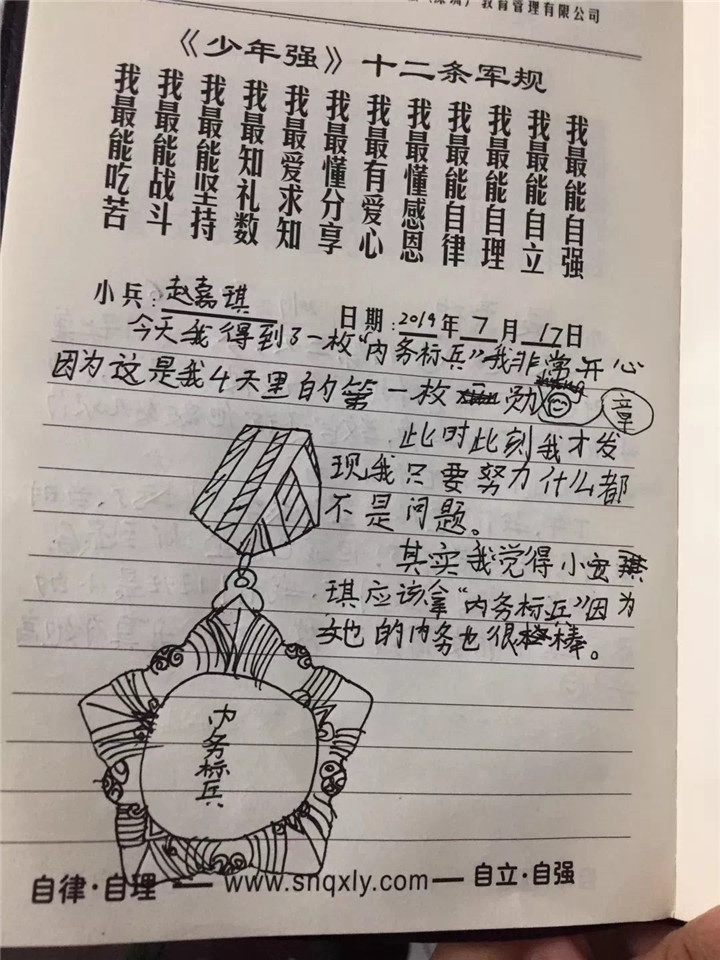 (深圳)教育管理有限公司
《少年强》十二条军规
我最能自强
我最能自立
我最能自理
我最能自律
我最懂感恩
我最有爱心
我最懂分享
我最爱求知
我最知礼数
我最能坚持
我最能战斗
我最能吃苦
小兵:赵嘉琪 日期:2019年7月17日
今天我得到了一枚“内务标兵”我非常开心
因为这是我4天里的第一枚勋章
此时此刻我才发
现我只要努力什么都
不是问题。
其实我觉得小安琪
琪应该拿“内务标兵”因为
她的内务也很棒。
内务标兵
自律·自理 — www.snqxly.com — 自立·自强